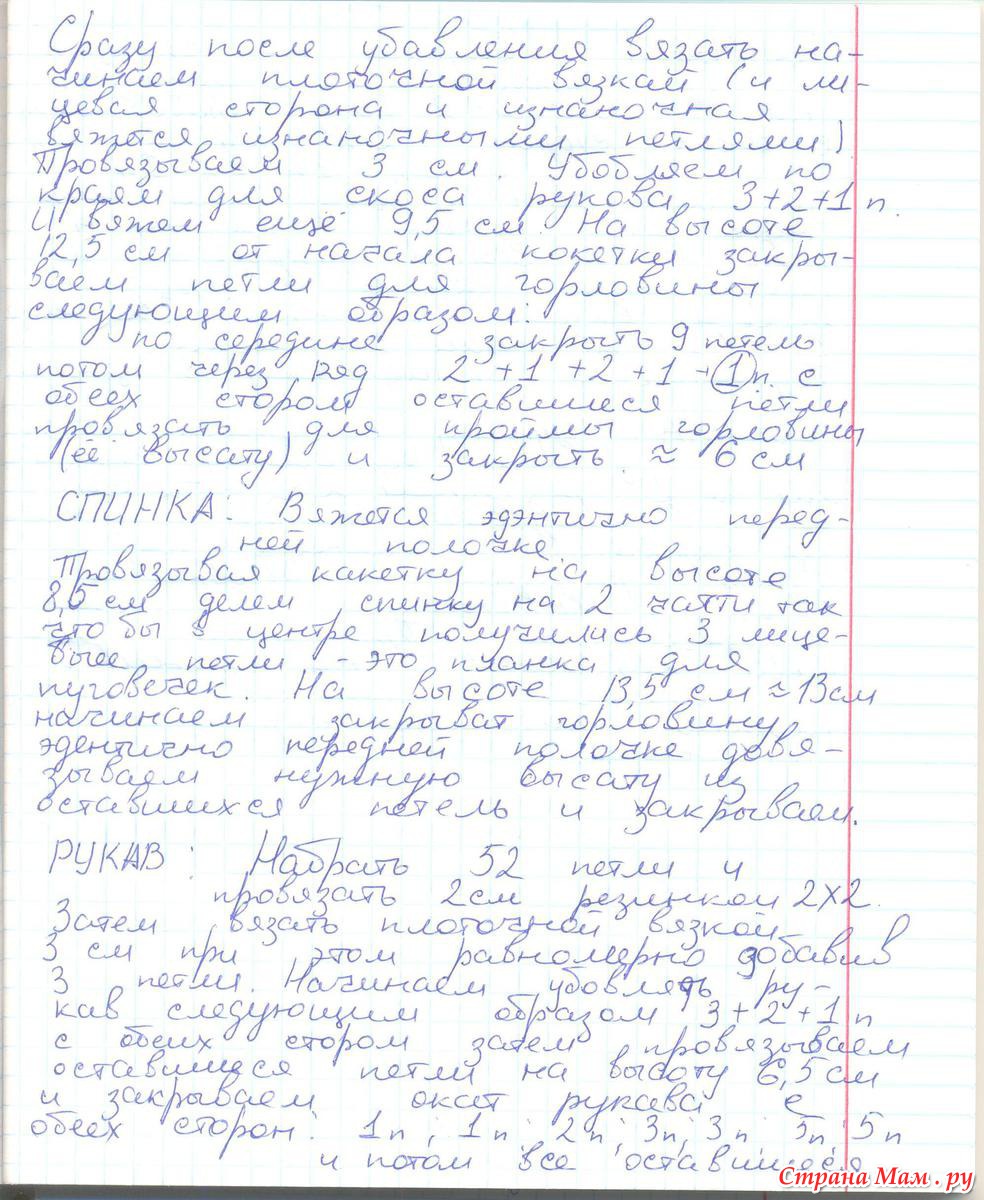 Сразу после убавления вязать на-
чинаем плоточной вязкай (и ли-
цевая сторона и изнаночная
вяжется изнаночными петлями)
Провязываем 3 см. Убобляем по
краям для скоса рукова 3+2+1 п.
И вяжем ещё 9,5 см. На высоте
12,5 см от начала кокетки закры-
ваем петли для горловины
следующим образом:
по середине закрыть 9 петель
потом через ряд 2 +1 +2 +1 +1 п. с
обеех сторон оставшиеся петли
провязать для проймы горловины
(её высату) и закрыть ≈ 6 см
СПИНКА: Вяжется эдэнтично перед-
ней полочке.
Провязывая какетку на высоте
8,5 см делем спинку на 2 части так
что бы в центре получились 3 лице-
выее петли - это планка для
пуговечек. На высоте 13,5 см ≈ 13 см
начинаем закрыват горловину
эдентично передней полочке довя-
зываем нужную высату из
оставшихся петель и закрываем.
РУКАВ: Набрать 52 петли и
провязать 2 см резинкой 2х2.
Затем вязать плоточной вязкой
3 см при этом равномерно добавив
3 петли. Начинаем убовлять ру-
кав следующим образом 3+2+1 п
с обеих сторон затем провязываем
оставшиеся петли на высоту 6,5 см
и закрываем окат рукава с
обеех сторон: 1п; 1п; 2п; 3п; 3п; 5п; 5п
и потом все оставшиеся
Страна Мам.ру